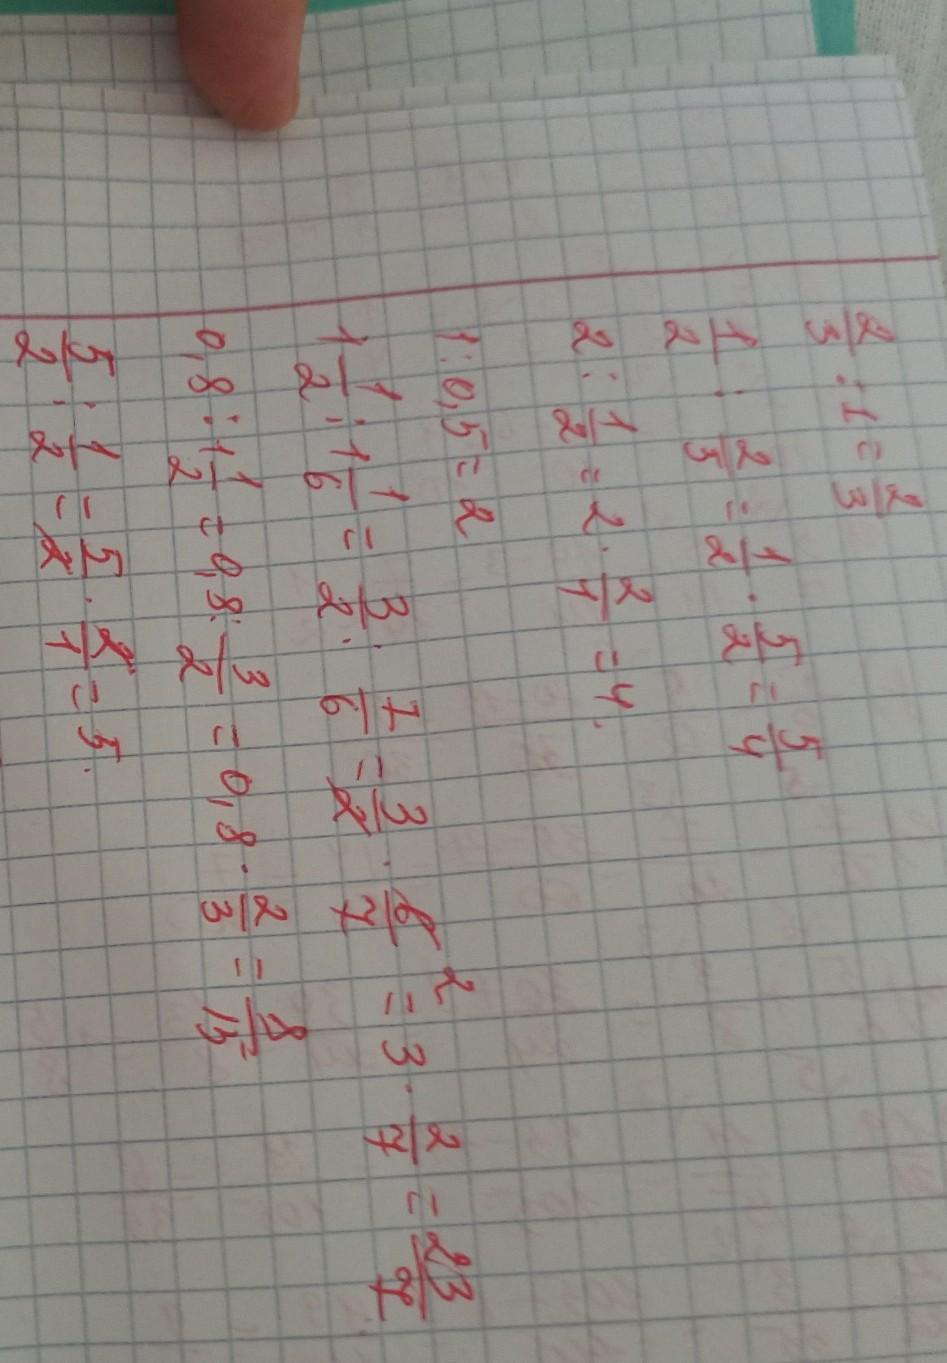 2/3 : 1 = 2/3
1/2 : 2/5 = 1/2 · 5/2 = 5/4
2 : 1/2 = 2 · 2/1 = 4.
1 : 0,5 = 2
1 1/2 : 1 1/6 = 3/2 : 7/6 = 3/2 · 6/7 2 = 3 · 2/7 = 23/7
0,8 : 1 1/2 = 0,8 : 3/2 = 0,8 · 2/3 = 8/15
5/2 : 1/2 = 5/2 · 2/1 = 5.